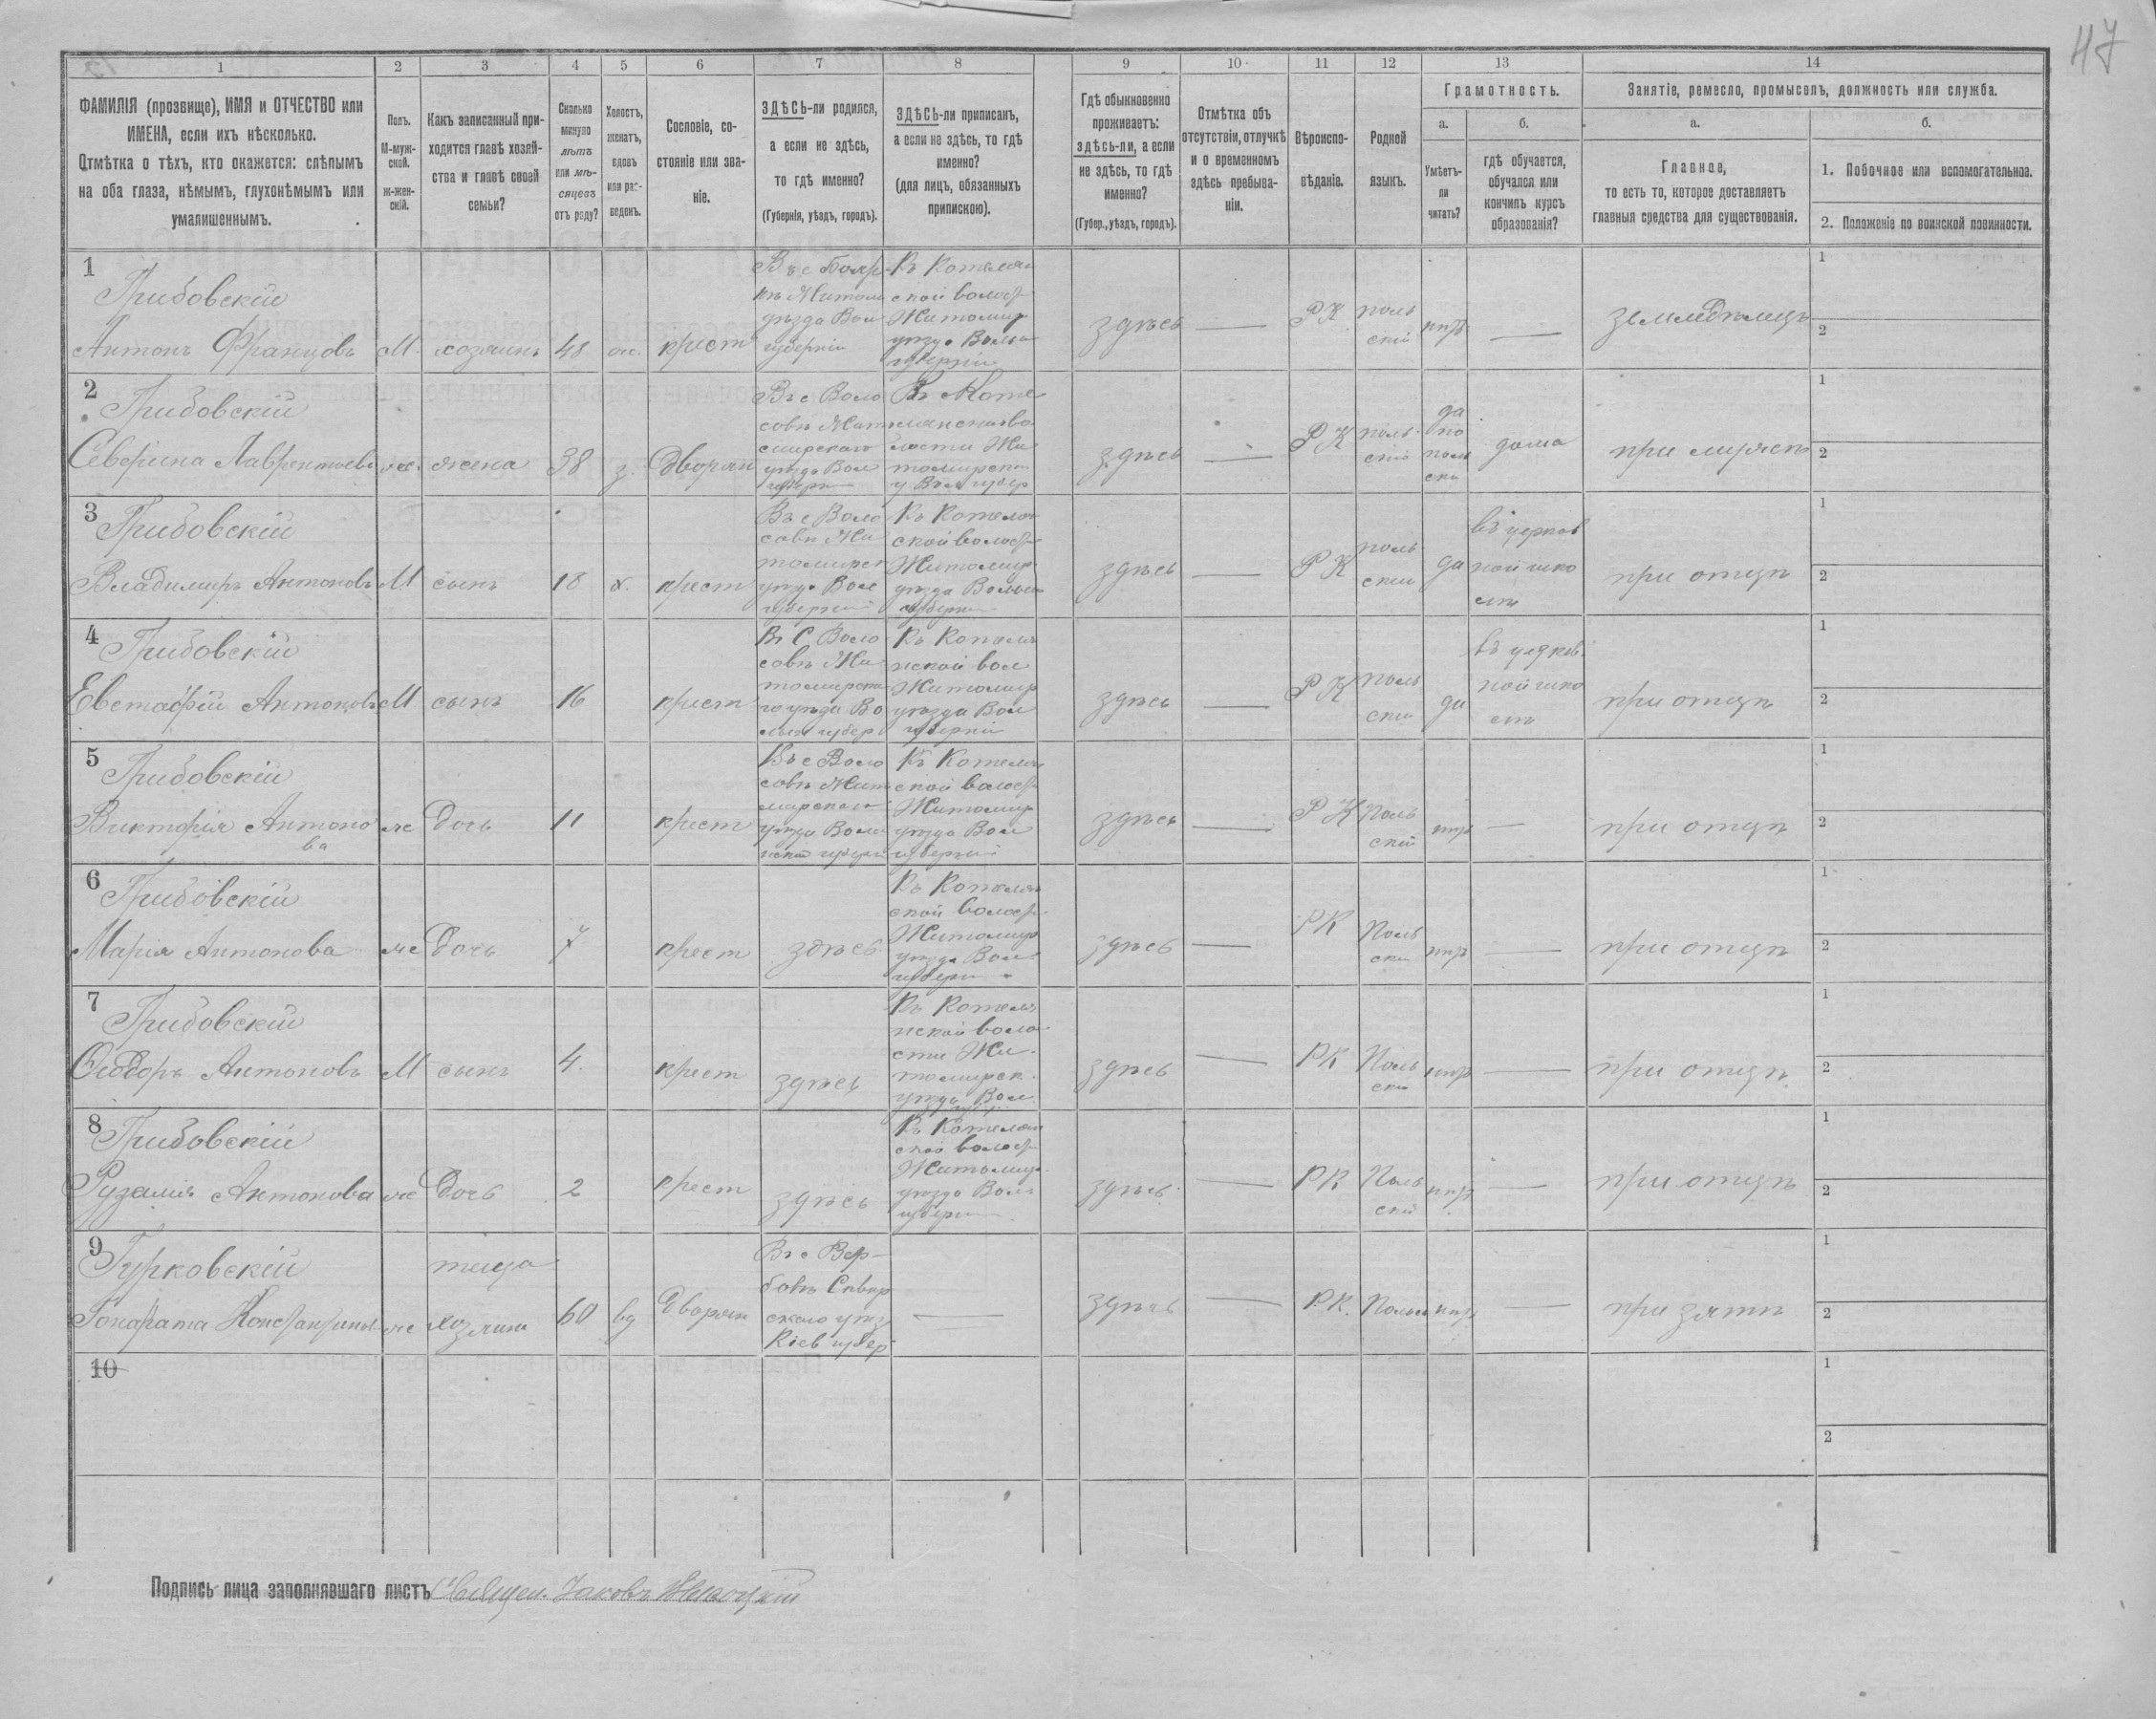 47
1 2 3 4 5 6 7 8 9 10 11 12 13 14
ФАМИЛІЯ (прозвище), ИМЯ и ОТЧЕСТВО или
ИМЕНА, если ихъ нѣсколько.
Отмѣтка о тѣхъ, кто окажется: слѣпымъ
на оба глаза, нѣмымъ, глухонѣмымъ или
умалишеннымъ.
Полъ.
М-муж-
ской.
ж-жен-
скій.
Какъ записанный при-
ходится главѣ хозяй-
ства и главѣ своей
семьи?
Сколько
минуло
лѣтъ
или мѣ-
сяцевъ
отъ роду?
Холостъ,
женатъ,
вдовъ
или раз-
веденъ.
Сословіе, со-
стояніе или зва-
ніе.
ЗДѢСЬ-ли родился,
а если не здѣсь,
то гдѣ именно?
(Губернія, уѣздъ, городъ).
ЗДѢСЬ-ли приписанъ,
а если не здѣсь, то гдѣ
именно?
(для лицъ, обязанныхъ
припискою).
Гдѣ обыкновенно
проживаетъ:
здѣсь-ли, а если
не здѣсь, то гдѣ
именно?
(Губер., уѣздъ, городъ).
Отмѣтка объ
отсутствіи, отлучкѣ
и о временномъ
здѣсь пребыва-
ніи.
Вѣроиспо-
вѣданіе.
Родной
языкъ.
Грамотность.
а.
Умѣетъ-
ли
читать?
б.
гдѣ обучается,
обучался или
кончилъ курсъ
образованія?
Занятіе, ремесло, промыселъ, должность или служба.
а.
Главное,
то есть то, которое доставляетъ
главныя средства для существованія.
б.
1. Побочное или вспомогательное.
2. Положеніе по воинской повинности.
1
Грибовскій
Антонъ Францовъ
М.
хозяинъ
48
крест
Въ с Бояр-
уѣзда Вол
губерніи
Къ Котелян
ской волост
Житомир
уѣзда Волын
губерніи
здѣсь
—
РК
поль
скій
—
земледѣлецъ
1
2
2
Грибовскій
Северина Лаврентьев
же.
жена
38
з.
Дворян
Въ с Воло
совѣ Жит
омирского
уѣзда Вол
губерн
Въ Коте
лянской во
лости Жи
томирск
у Вол губер
здѣсь
—
РК
поль
скій
да
по
поль
ски
дома
при мужѣ
1
2
3
Грибовскій
Владимиръ Антоновъ
М
сынъ
18
х.
крест
Въ с Воло
совѣ Жи
томирск
уѣзд Вол
губерніи
Къ Котелян
ской волост
Житомир
уѣзда Волын
губерни
здѣсь
—
РК
поль
ски
да
въ церков
ной шко
лѣ
при отцѣ
1
2
4
Грибовскій
Евстафій Антоновъ
М
сынъ
16
крест
Въ С Воло
совѣ Жи
томирска
го уѣзда Во
лын губер
Къ Котеля
нской вол
Житомир
уѣзда Вол
губерніи
здѣсь
—
РК
поль
ски
да
въ церков
ной шко
лѣ
при отцѣ
1
2
5
Грибовскій
Викторія Антоно
ва
же
Дочь
11
крест
Въ с Воло
совѣ Жито
мирского
уѣзда Волы
нской губерн
Къ Котелян
ской волост
Житомир
уѣзда Вол
губерніи
здѣсь
—
РК
Поль
ский
—
при отцѣ
1
2
6
Грибовскій
Марія Антонова
же
Дочь
7
крест
здѣсь
Къ Котелян
ской волост
Житомир
уѣзда Вол
губерн
здѣсь
—
РК
Поль
ски
—
при отцѣ
1
2
7
Грибовскій
Ѳеодоръ Антоновъ
М
сынъ
4.
крест
здѣсь
Къ Котеля
нской воло
сти Жи
томирск.
уѣзда Вол
здѣсь
—
РК
Поль
ски
—
при отцѣ
1
2
8
Грибовскій
Рузалія Антонова
же
Дочь
2
крест
здѣсь
Къ Котелян
ской волост
Житомир
уѣзда Вол
губерн
здѣсь
—
РК
Поль
ский
—
при отцѣ
1
2
9
Гурковскій
Гонората Константинов
же
теща
хозяина
60
вд
Дворян
Въ с Вер-
бовѣ Сквир
ского уѣз
Кіев губер
—
здѣсь
—
РК.
Польс
—
при зятѣ
1
2
10
1
2
Подпись лица заполнявшаго листъ Священ. Іаковъ